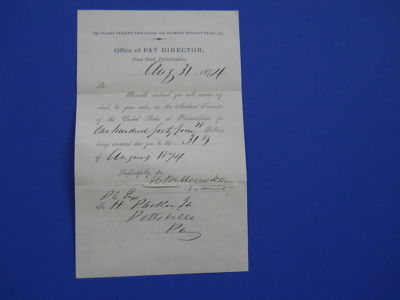 PLEASE PRESENT THIS CHECK FOR PAYMENT WITHOUT DELAY.
Office of PAY DIRECTOR,
Navy Yard, Philadelphia,
Aug 31 1874
Sir
Herewith enclosed you will receive my
check, to your order, on the Assistant Treasurer
of the United States at Philadelphia for
One Hundred forty four Dollars,
being amount due you to the 31st
of August 1874
Respectfully,
P.A. Eng
To H. Parker Jr
Pottsville
Pa